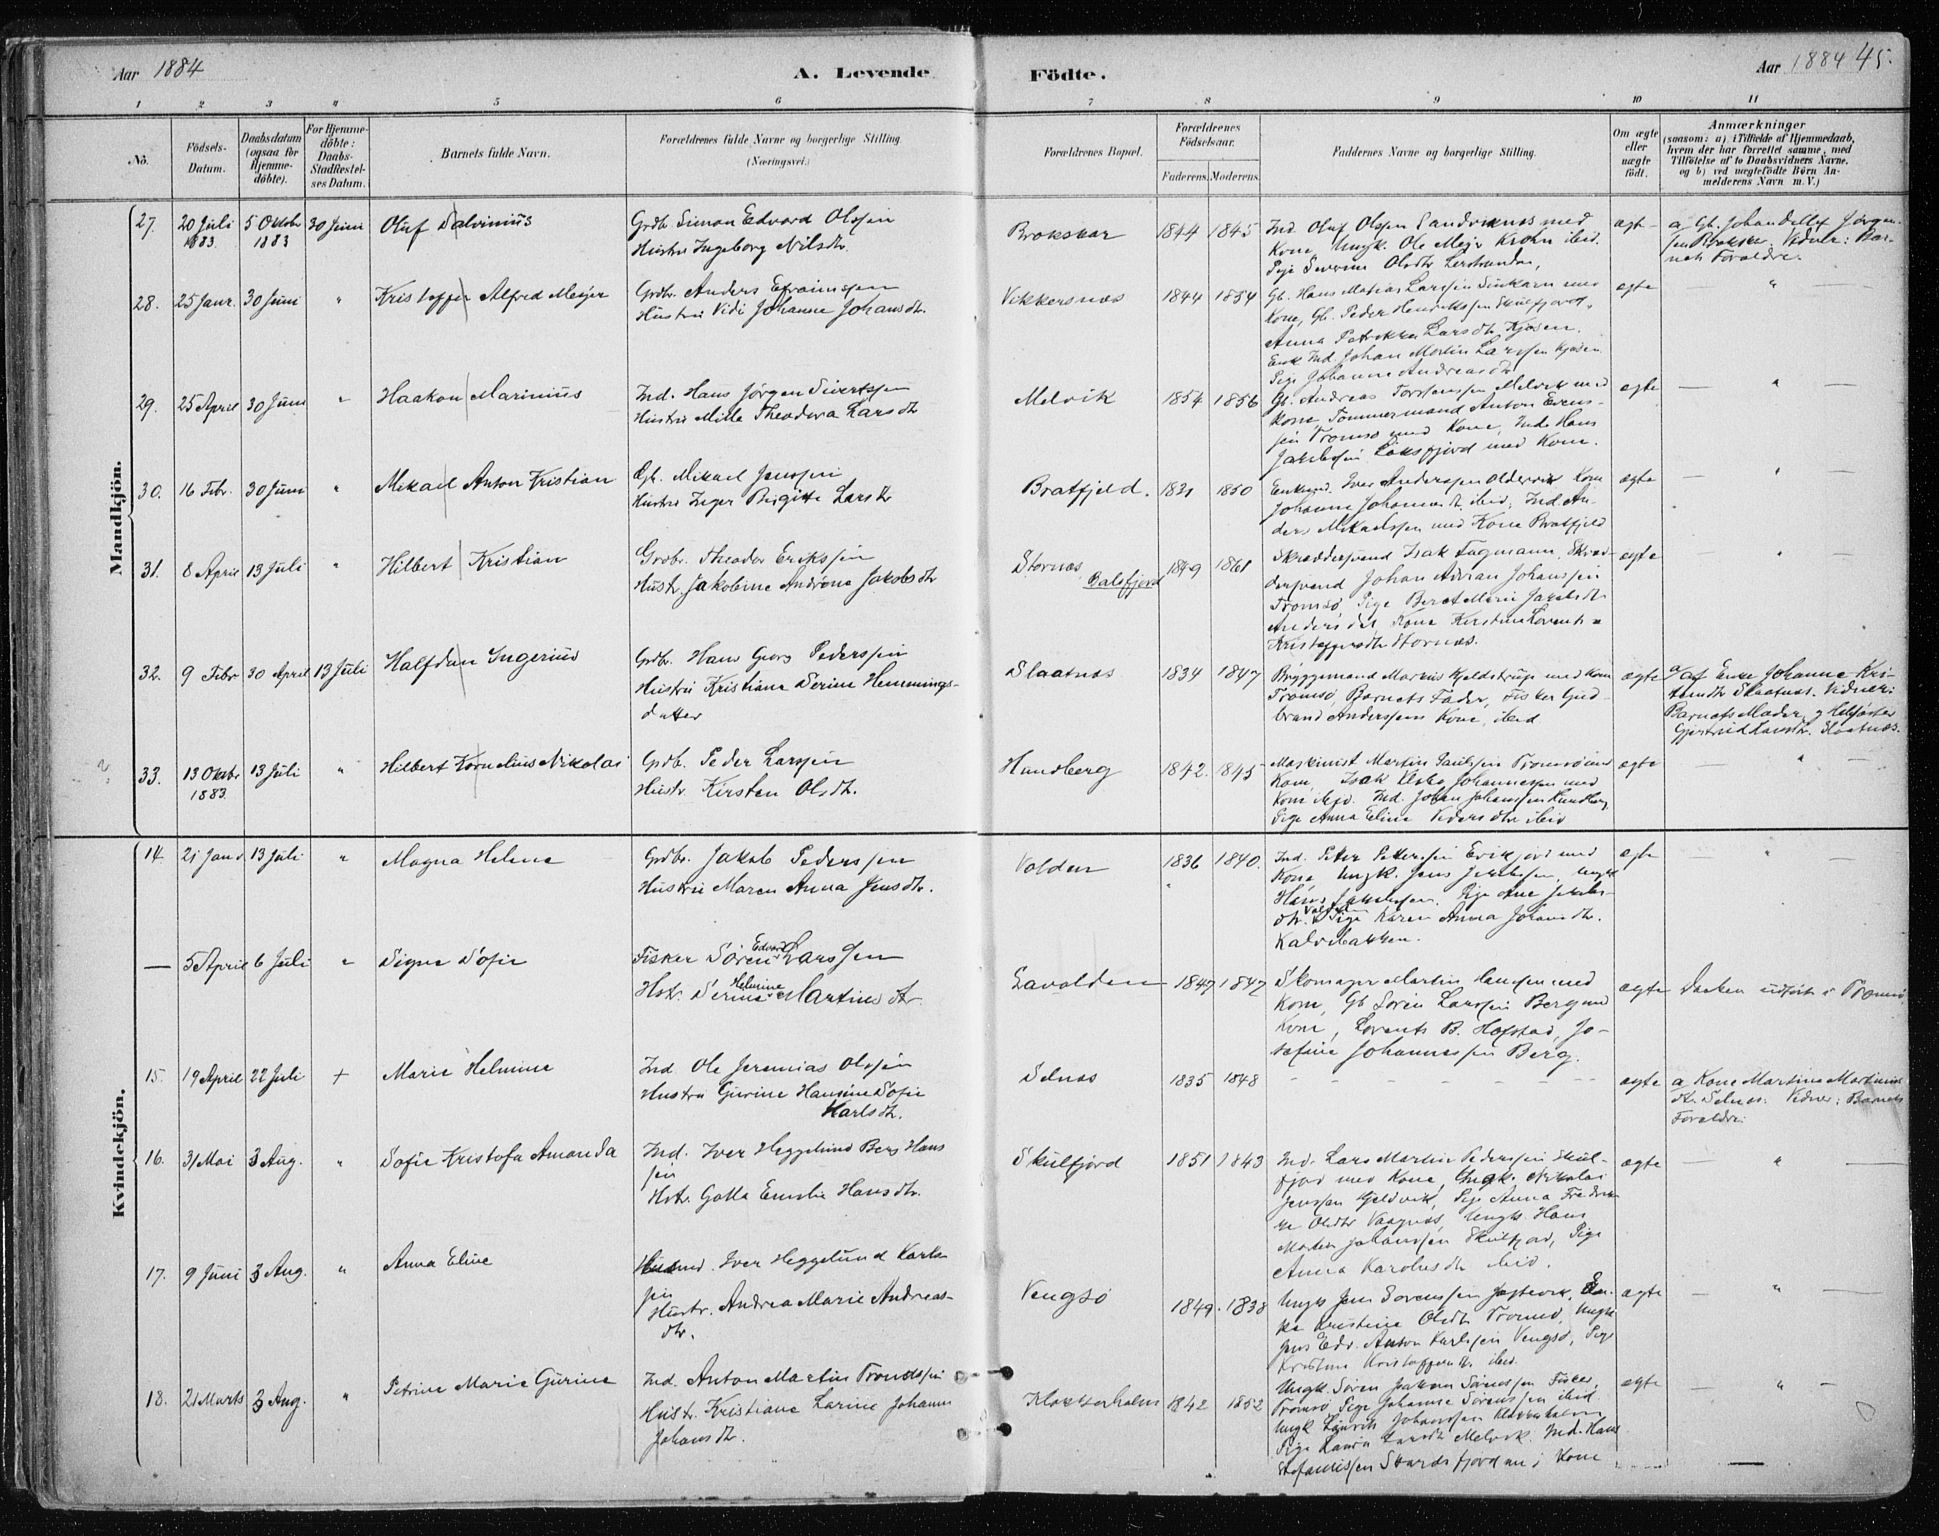 Aar 1884
A. Levende
Födte.
Aar 1884 45.
1 2 3 4 5 6 7 8 9 10 11
No.
Födsels-
Datum.
Daabsdatum
(ogsaa for
Hjemme-
döbte).
For Hjemme-
döbte:
Daabs-
Stadfæstel-
ses Datum.
Barnets fulde Navn.
Forældrenes fulde Navne og borgerlige Stilling
(Næringsvei.)
Forældrenes Bopæl.
Forældrenes
Födselsaar.
Faderens. Moderens.
Faddernes Navne og borgerlige Stilling.
Om ægte
eller
uægte
födt.
Anmærkninger
(saasom: a) i Tilfælde af Hjemmedaab,
hvem der har forrettet samme, med
Tilföielse af to Daabsvidners Navne,
og b) ved uægtefödte Börn An-
melderens Navn m. V.)
Mandkjön.
27. 20 Juli 5 Oktbr 30 Juni Oluf Salvinius Grdb. Simon Edvard Olssen
1883 1883
Hustru Ingeborg Nilsdtr.
Brokskar 1844 1845 Ind. Oluf Olssen Sandviknes med
Kone, Ungk. Ole Mejer Krohn ibid.
Pige Olsdtr
ægte a Gb. Johan Jørgen-
Vidner: Bar-
nets Foreldre.
28. 25 Janr. 30 Juni " Kristoffer Alfred Meyer Grdbr. Anders Efraimssen
Hustru Vidi Johanne Johansdtr.
Vikkersnes 1844 1854 Gb. Hans Matias Larssen med
Kone, Gb. Peder Henrikssen Skulfjord,
Anna Petrikke Larsdtr. Kjosen.
Ind. Johan Martin Larssen Kjosen
Pige Johanne Andreasdtr
ægte — " —
29. 25 April 30 Juni " Haakon Marinius Ind. Hans Jørgen Sivertssen
Hustru Mille Theodora Larsdtr
Melvik 1854 1856 Gb. Andreas Torstenssen Melvik med
Kone, Tømmermand Anton Evens-
sen Tromsø med Kone, Ind. Hans
Jakobssen med Kone.
ægte — " —
30. 16 Febr. 30 Juni " Mikael Anton Kristian Gb. Mikael Jenssen
Hustru Inger Birgitte Larsdtr
Bratfjeld. 1831 1850 Iver Anderssen Oldervik Kone
Johanne Johannesdtr. ibid, Ind. An-
ders Mikaelssen med Kone Bratfjeld
ægte — " —
31. 8 April 13 Juli " Hilbert Kristian Grdbr. Theodor Erikssen
Hustr. Jakobine Andrøne Jakobsdtr
Stornes
Balsfjord 1849 1861 Skræddersvend Isak Fagmann, Skræd-
dersvend Johan Adrian Johanssen
Tromsø, Pige Beret Marie Jakobsdtr
Andersdal, Kone Kirstine Lorents-
Kristoffersdtr Stornes.
ægte — " —
32. 9 Febr 30 April 13 Juli Halfdan Ingerius Grdbr. Hans Georg Pederssen
Hustru Kristiane Serine Hemmings-
datter
Slaatnes 1834 1847 Bryggemand Markus Kjeldstrup med Kone
Tromsø, Barnets Fader, Fisker Gud-
brand Anderssens Kone, ibid
ægte a/ af Enke Johanne Kri-
Slaatnes. Vidner:
Barnets Moder, og
Gjertrud Larsdtr. Slaatnes.
33. 13 Oktbr 13 Juli " Hilbert Kornelius Nikolai Grdb. Peder Larssen
1883.
Hustr. Kirsten Olsdtr.
Hundberg 1842. 1845 Maskinist Martin Paulssen Tromsø med
Kone, Isak Johannessen med
Kone ibid. Ind. Johan Johanssen Hundberg,
Pige Anna Eline Pedersdtr ibid
ægte — " —
Kvindekjön.
14. 21 Janr 13 Juli " Magna Helene Grdbr. Jakob Pederssen
Hustru Maren Anna Jensdtr.
Volden 1836 1840. Ind. Peter Petterssen Erikfjord med
Kone Ungk. Jens Jakobssen, Ungk
Hans Jakobssen, Pige Ane Jakobs-
dtr. Volden Pige Karen Anna Johansdtr.
Kalvebakken.
ægte — " —
— 5 April 6 Juli " Signe Sofie Fisker Søren Edvard Larssen
Hstr. Serina Helmine Martinusdtr.
Lavolden 1847 1847 Skomager Martin Hanssen med
Kone, Gb Søren Larssen Berg med
Kone, Lorents B. Hofstad, Jo-
sefine Johannessen Berg.
ægte Daaben udført i Tromsø
15. 19 April 22 Juli + Marie Helmine Ind. Ole Jeremias Olssen
Hustru Gurine Hansine Sofie
Karlsdtr.
Selnes 1835 1848 - - - - - ægte a Kone Martine Martinus-
dtr. Selnes. Vidner: Barnets
Foreldre.
16. 31 Mai 3 Aug. " Sofie Kristofa Amanda Ind. Iver Heggelund Berg Hans
sen
Hstr. Golla Emelie Hansdtr.
Skulfjord 1851 1843 Ind. Lars Martin Pederssen Skul-
fjord med Kone, Ungk. Nikolai
Jenssen Pige Anna Fredrik-
ke Olsdtr Vaagnes, Ungk. Hans
Martin Johanssen Skulfjord, Pige
Anna Karolusdtr ibid.
ægte — " —
17. 9 Juni 3 Aug. " Anna Eline Husmd. Iver Heggelund Karls-
sen
Hustr. Andrea Marie Andreas-
dtr.
Vengsø 1849. 1838 Ungk Jens Sørenssen En-
ke Kristine Olsdtr Tromsø, Ungk
Jens Edv. Anton Karlssen Vengsø, Pige
Kristine Kristoffersdtr. ibid.
ægte — " —
18. 21 Marts 3 Aug. " Petrine Marie Gurine Ind. Anton Martin Trondssen
Hustr. Kristiane Larine Johanne
Johansdtr.
Klokkerholm 1842 1852 Ungk. Søren Jakim Sørenssen
Tromsø Pige Johanne Sørenssen ibid
Ungk Johanssen Klokkerholm
Pige Laura Larsdtr Melvik. Ind. Hans
Stofanussen Skardsfjorden i Kone
ægte — " —